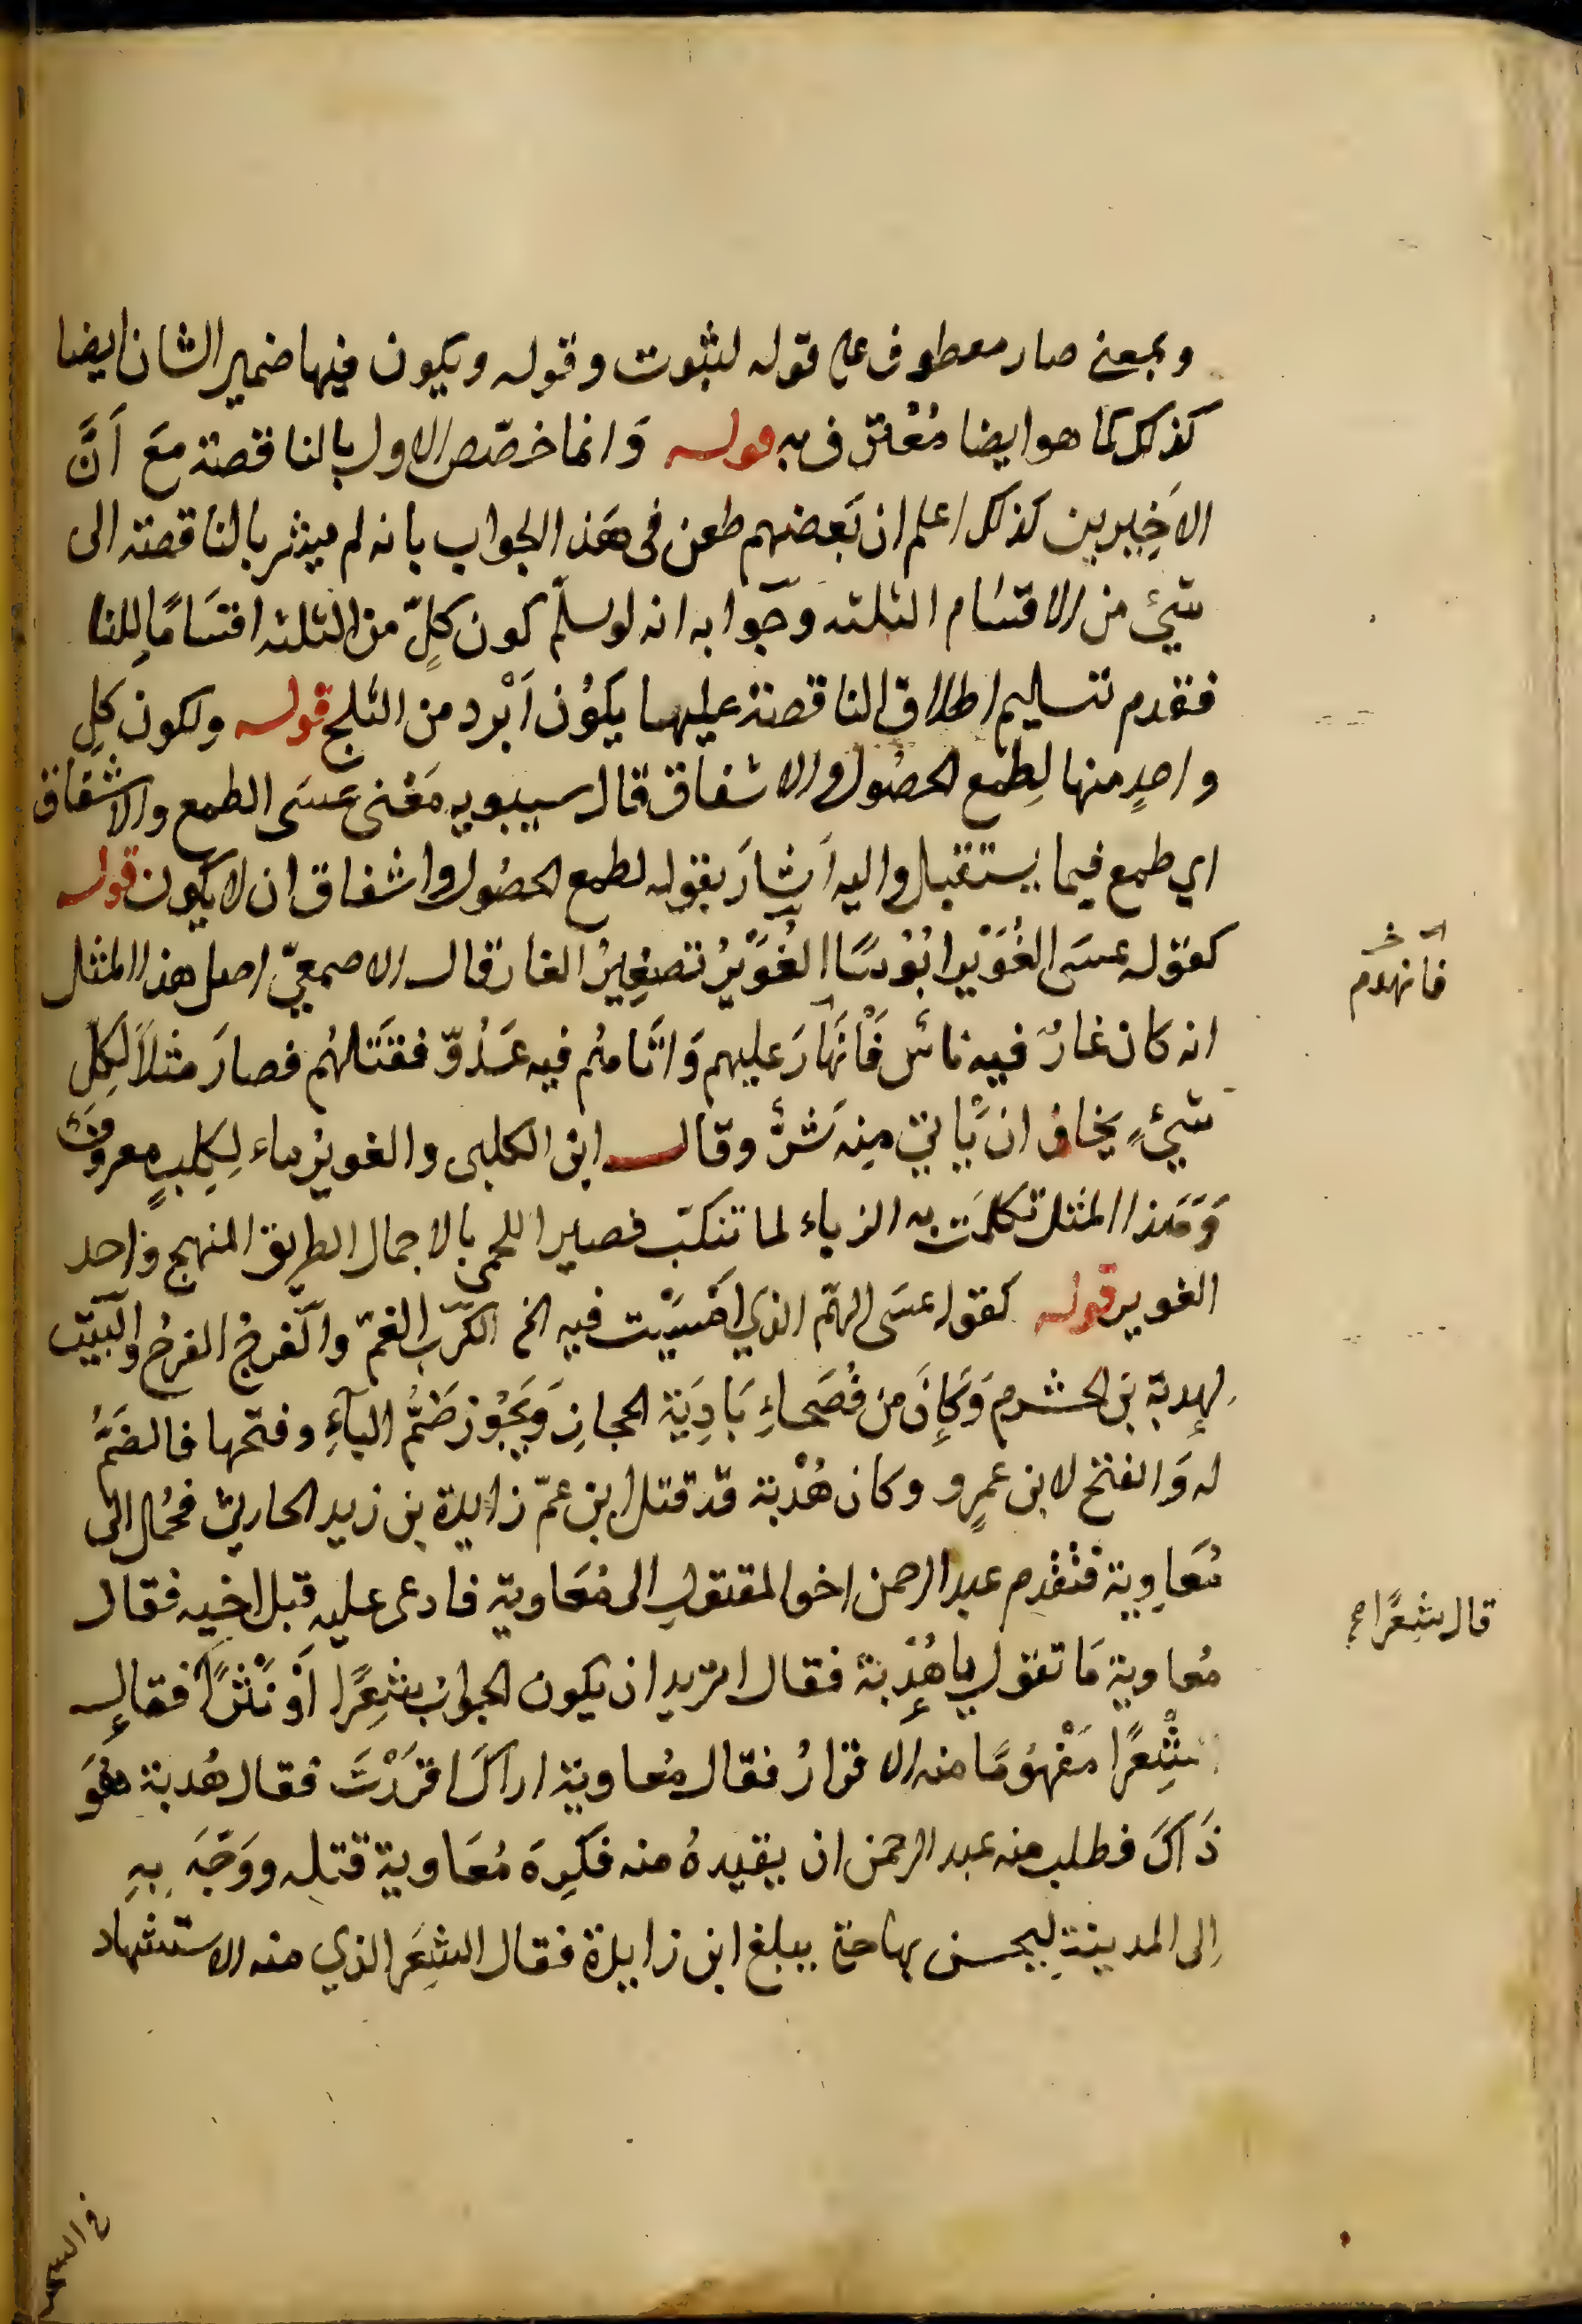 وبمعنى صار معطوف على قوله لثبوت وقوله ويكون فيها ضمير الشان ايضا
كذلك كما هو ايضا مُعْترف به قوله وَانما خصّص الاول بالناقصة مَعَ اَنَّ
الاَخِيرين كذلك اعلم ان بَعضهم طعن فى هَذا الجواب بانه لم يشر بالناقصة الى
شيئ من الاقسَام الثلثه وجَوابه انه لو سلّم كون كلٍّ من الثلثه اقسَامًا للنا
فقدم تسليم اطلاق الناقصة عليها يكوُن اَبْرد من الثلج قوله ولكون كلِ
واحدٍ منها لِطمع الحصُول والاشفاق قال سيبويه مَعْنى عسَى الطمع والاشفاق
اي طمع فيما يستقبل واليه اَشارَ بقوله لطمع الحصُول واشفاق ان لا يكون قوله
كقوله عسَى الغُوَيْر ابُوسًا الغُوَيْرُ تصغِيرُ الغار قال الاصمعيّ اصل هذا المثل
انه كان غارٌ فيه ناسٌ فَانْهَارَ عليهم وَاتَاهُم فيه عَدُوّ فقَتَلهُم فصارَ مثلاً لِكلِ
شيئٍ يخاف ان يَّاتي مِنه شَرٌّ وقال ابن الكلبى والغوير ماء لِكلبٍ معروفٌ
وَهَذا المثل تكلمَت به الزباء لما تنكبّ قصير اللخمى بالاجمال الطريق المنهج واحد
الغوير قوله كقول عسَى الهمّ الذي اَمْسَيْت فيه الخ الكَرْب الغمّ والفرجُ الفرحُ والبَيت
لهِدبة بن الخشرم وَكانَ من فُصَحاءِ بَادِيَة الحجازِ وَيَجُوز ضَمُّ التآءِ وفتحها فالضَمُّ
له وَالفتح لابن عمرٍو وكان هُدْبة قد قتل ابن عمّ زايدة بن زيد الحارثى فحُمل الى
مُعَاوِية فتقدم عبد الرحمن اخو المقتول الى مُعَاوية فادعى عليه قبل اخيه فقال
مُعاوية مَا تقول يا هُدْبة فقال اتريد ان يكون الجوابُ شِعرًا اَوْ نَثْرًا فقال
شِعرًا مَفْهُومًا منه الاقرارُ فقال مُعاوية اراكَ اقرَرْتَ فقال هُدبة هُوَ
ذَاكَ فطلب منه عبد الرحمن ان يقيدهُ منه فكَرِهَ مُعَاوية قتله ووَجَّهَ بِهِ
اِلى المدينةِ ليحبس بها حتى يبلغ ابن زايدة فقال الشِعَر الذي منه الاستشهاد
فانهدم
قال شِعرًا